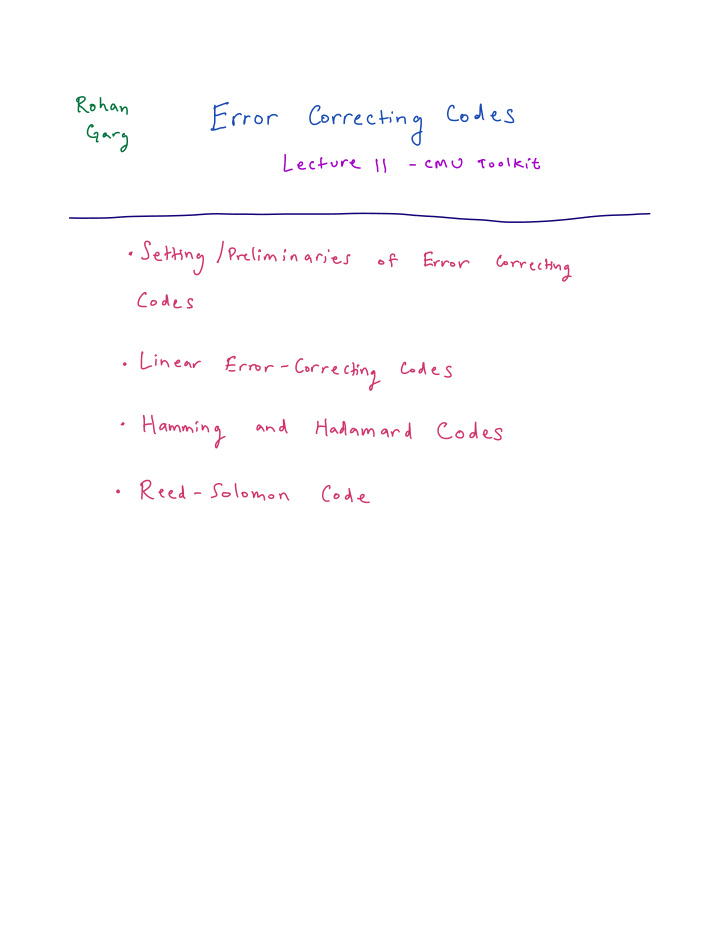 Rohan
Garg
Error Correcting Codes
Lecture 11 - CMU Toolkit
• Setting/Preliminaries of Error Correcting
Codes
• Linear Error-Correcting Codes
• Hamming and Hadamard Codes
• Reed-Solomon Code